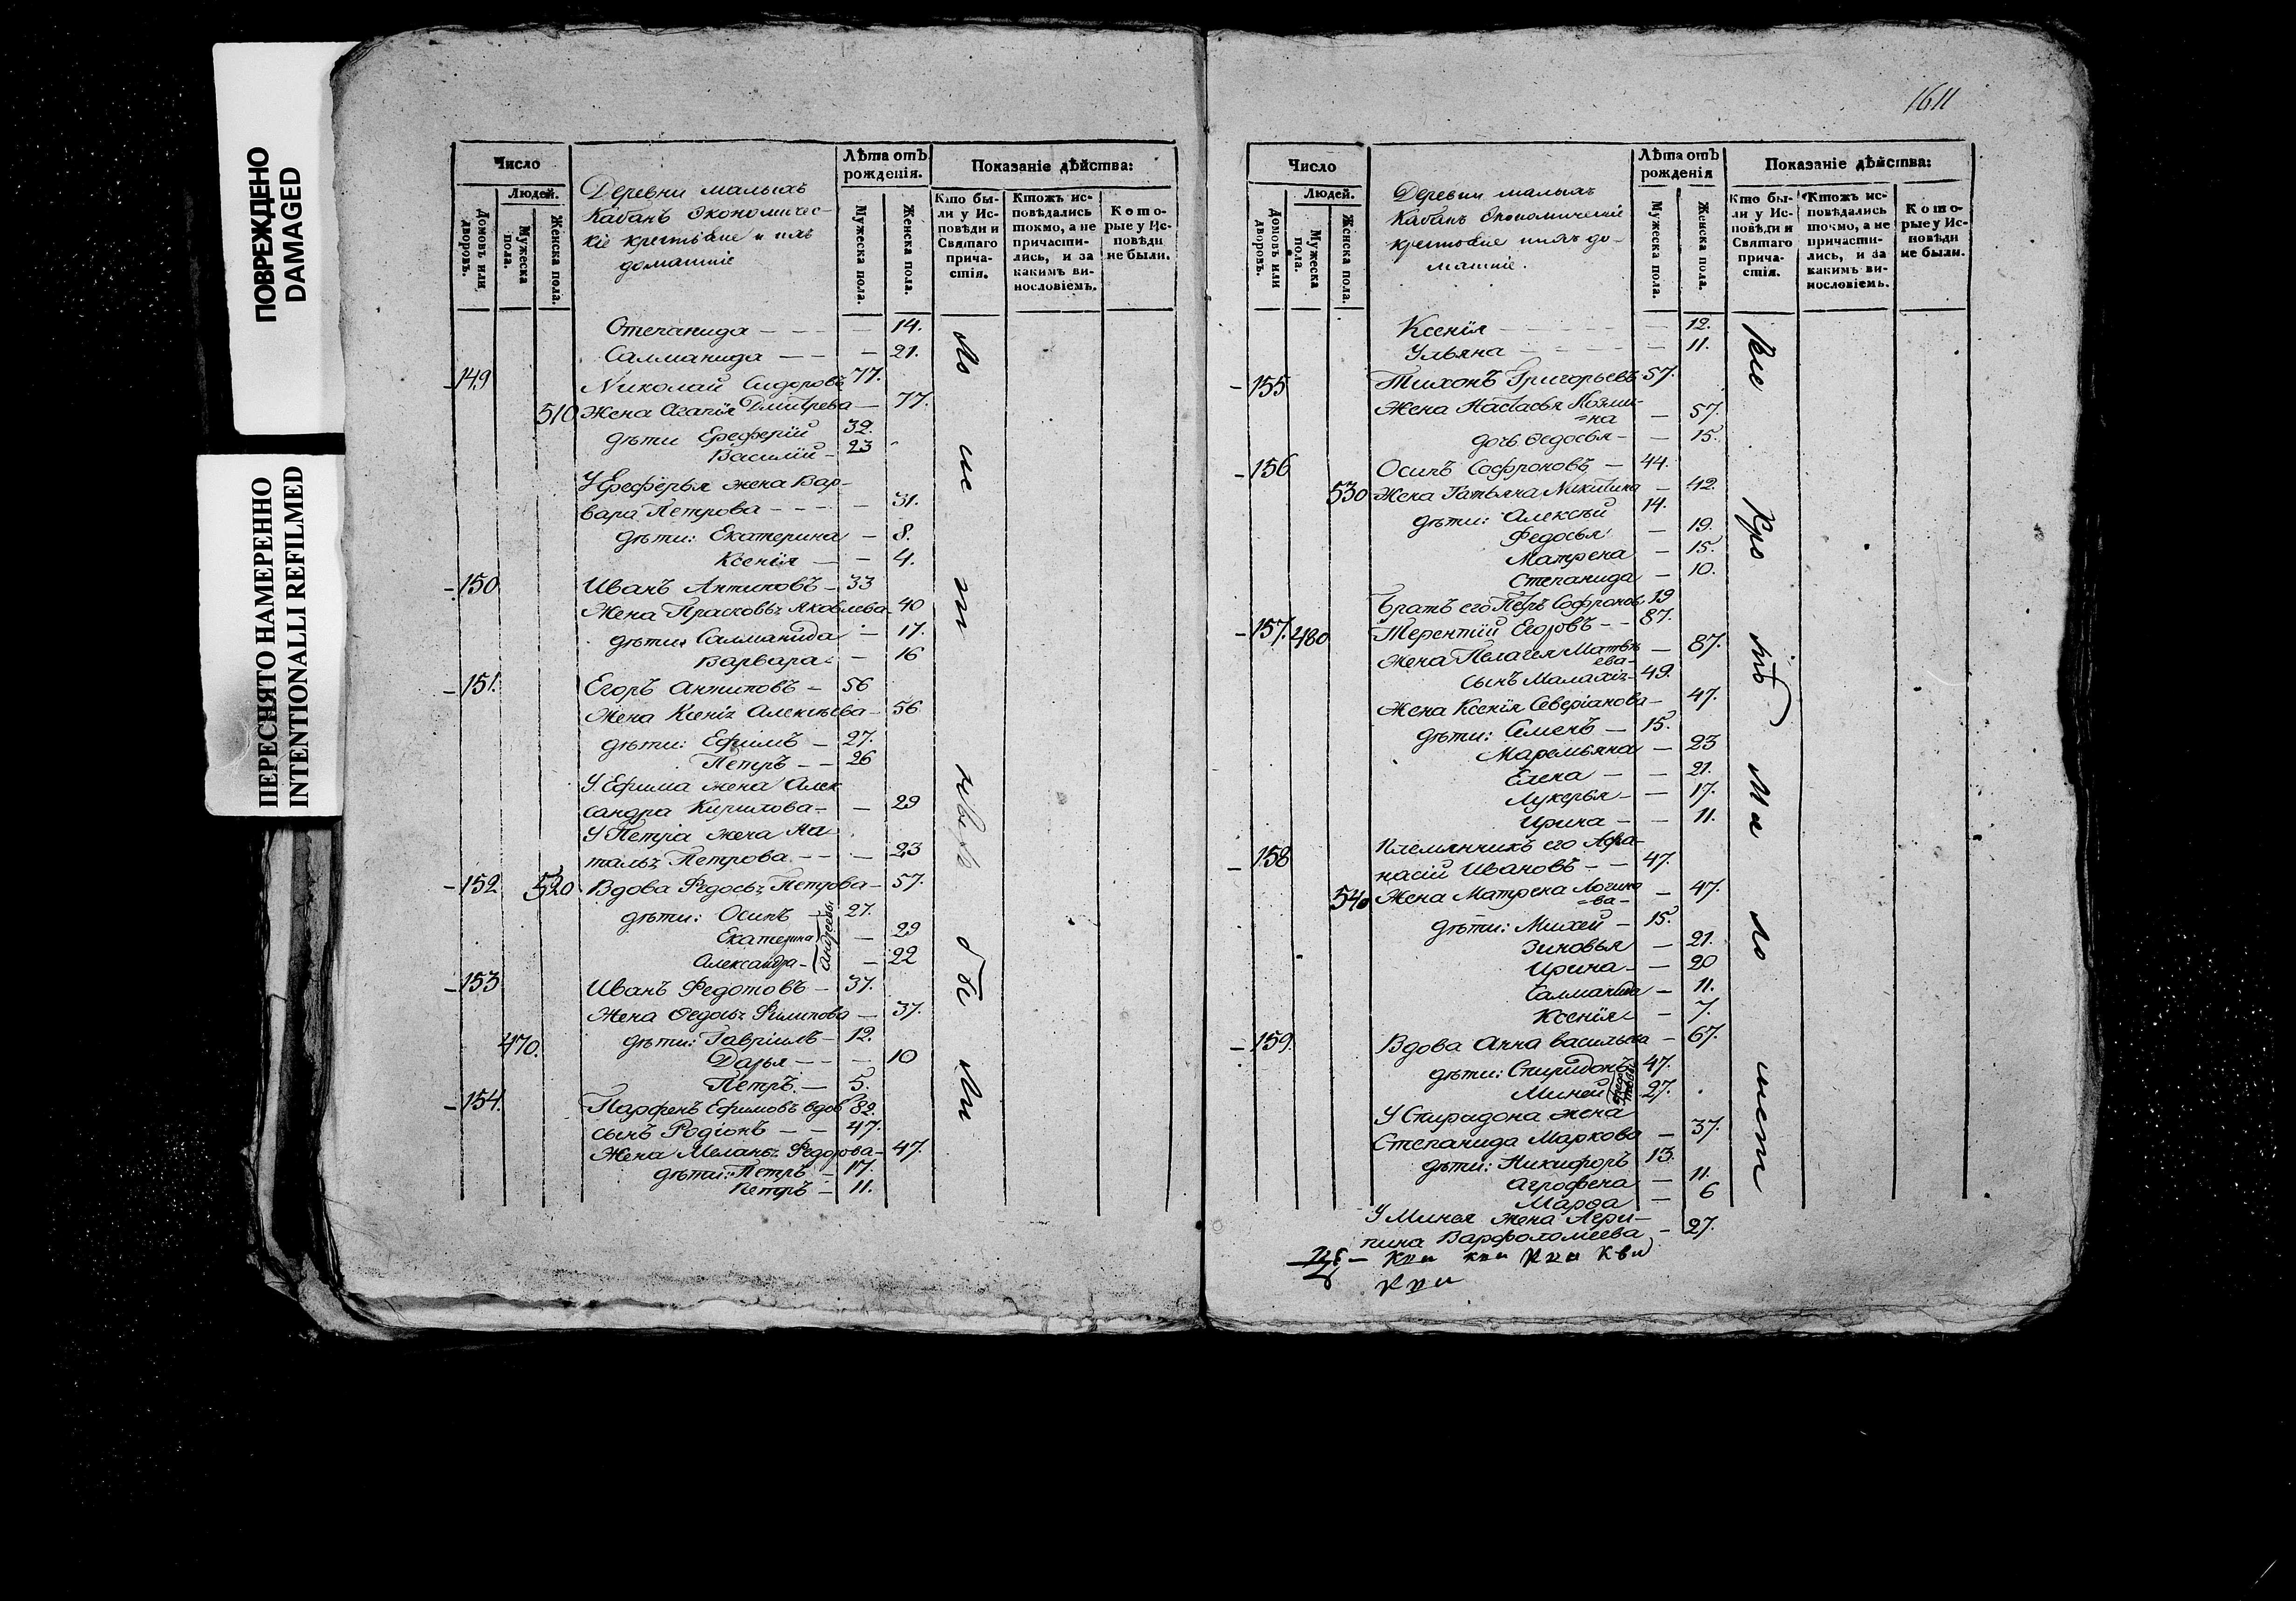 ПОВРЕЖДЕНО
DAMAGED
ПЕРЕСНЯТО НАМЕРЕННО
INTENTIONALLI REFILMED
Число
Людей.
Домовъ или дворовъ.
Мужеска пола.
Женска пола.
Деревни малыхъ
Кабанъ Экономичес-
кіе крестьяне и ихъ
домашніе
Лѣта отъ рожденія.
Мужеска пола.
Женска пола.
Показаніе дѣйства:
Кто бы-
ли у Ис-
повѣди и
Святаго
прича-
стія.
Ктожъ ис-
повѣдались
токмо, а не
причасти-
лись, и за
какимъ ви-
нословіемъ.
Кото-
рые у Ис-
повѣди
не были.
Степанида - - - - 14.
Салманида - - - 21.
149 Николай Сидоровъ 77.
510 Жена Агапія Дмитрева - 77.
дѣти Ереферій 32.
Василій - 23
У Ереферья жена Вар-
вара Петрова - - - - 31.
дѣти: Екатерина - 8.
Ксенія - - 4.
150 Иванъ Антиповъ - 33
Жена Прасковья Яковлева - 40
дѣти: Салманида - 17.
Варвара - - 16
151. Егоръ Антиповъ - 56
Жена Ксенія Алексѣева - 56
дѣти: Ефимъ - 27.
Петръ - - 26
У Ефима жена Алек
сандра Кирилова - - 29
У Петра жена На
талья Петрова - - - 23
152 520 Вдова Федосья Петрова - 57.
дѣти: Осипъ - 27.
Екатерина - 29
Александра - - 22
Андреевы
153 Иванъ Федотовъ - 37.
Жена Федосья Филипова - 37.
470. дѣти: Гавріилъ - 12.
Дарья - - - 10
Петръ. - 5.
154. Парфенъ Ефимовъ вдов 82.
сынъ Родіонъ - - 47.
Жена Меланья Федорова - 47.
дѣти: Петръ - 17.
Петръ - 11.
бы
ли
1611
Число
Людей.
Домовъ или дворовъ.
Мужеска пола.
Женска пола.
Деревни малыхъ
Кабанъ Экономическіе
крестьяне и ихъ до-
машніе.
Лѣта отъ рожденія
Мужеска пола.
Женска пола.
Показаніе дѣйства:
Кто бы-
ли у Ис-
повѣди и
Святаго
прича-
стія.
Ктожъ ис-
повѣдались
токмо, а не
причасти-
лись, и за
какимъ ви-
нословіемъ.
Кото-
рые у Ис-
повѣди
не были.
Ксенія - - - - - - 12.
Ульяна - - - - - 11.
155 Тихонъ Григорьевъ 57.
Жена Настасья Козми-
=на - 57.
дочь Федосья - - 15.
156 Осипъ Софроновъ - 44.
530 Жена Татьяна Никитина - 42.
дѣти: Алексѣй 14.
Федосья - 19.
Матрена - 15.
Степанида - 10.
Братъ его Петръ Софроновъ 19
157. 480 Терентій Егоровъ - - 87.
Жена Пелагея Матвѣ
ева - - 87.
сынъ Малахія - 49.
Жена Ксенія Северіанова - 47.
дѣти: Семенъ - 15.
Маремьяна - 23
Елена - - 21.
Лукерья - - 17.
Ирина - - 11.
158 Племянникъ его Афа-
насій Ивановъ - - 47.
540 Жена Матрена Логино
=ва - - 47.
дѣти: Михей - 15.
Зиновья - 21.
Ирина - - 20
Салманида - 11.
Ксенія - 7.
159. Вдова Анна Васильева - 67.
дѣти: Спиридонъ 47.
Миней 27.
У Спиридона жена
Степанида Маркова - 37.
дѣти: Никифоръ 13.
Агрофена - 11.
Марфа - 6
У Минея жена Агри-
пина Варфоломеева - 27.